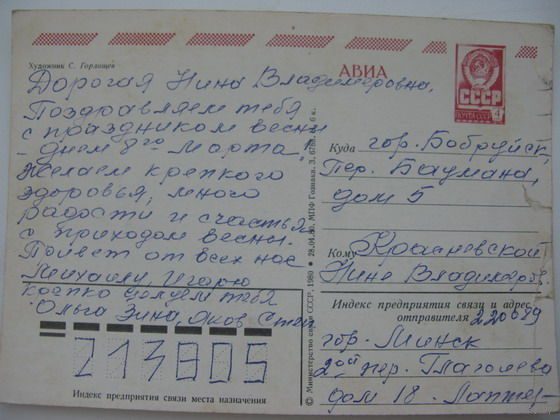 Художник С. Горлищев
АВИА
СССР
Дорогая Нина Владимировна,
Поздравляем тебя
с праздником весны
- днем 8го Марта!
Желаем крепкого
здоровья, много
радости и счастья
с приходом весны.
Привет от всех нас
Михаилу, Игорю
крепко целуем тебя
Ольга Зина, Яков
213805
Индекс предприятия связи места назначения
© Министерство связи СССР. 1980
28.04.80. МПФ Гознака. З.
Куда гор. Бобруйск,
пер. Баумана,
дом 5
Кому Красневской
Нине Владимиров.
Индекс предприятия связи и адрес
отправителя 220089
гор. Минск
2ой пер. Глаголева
дом 18. Лаптер-